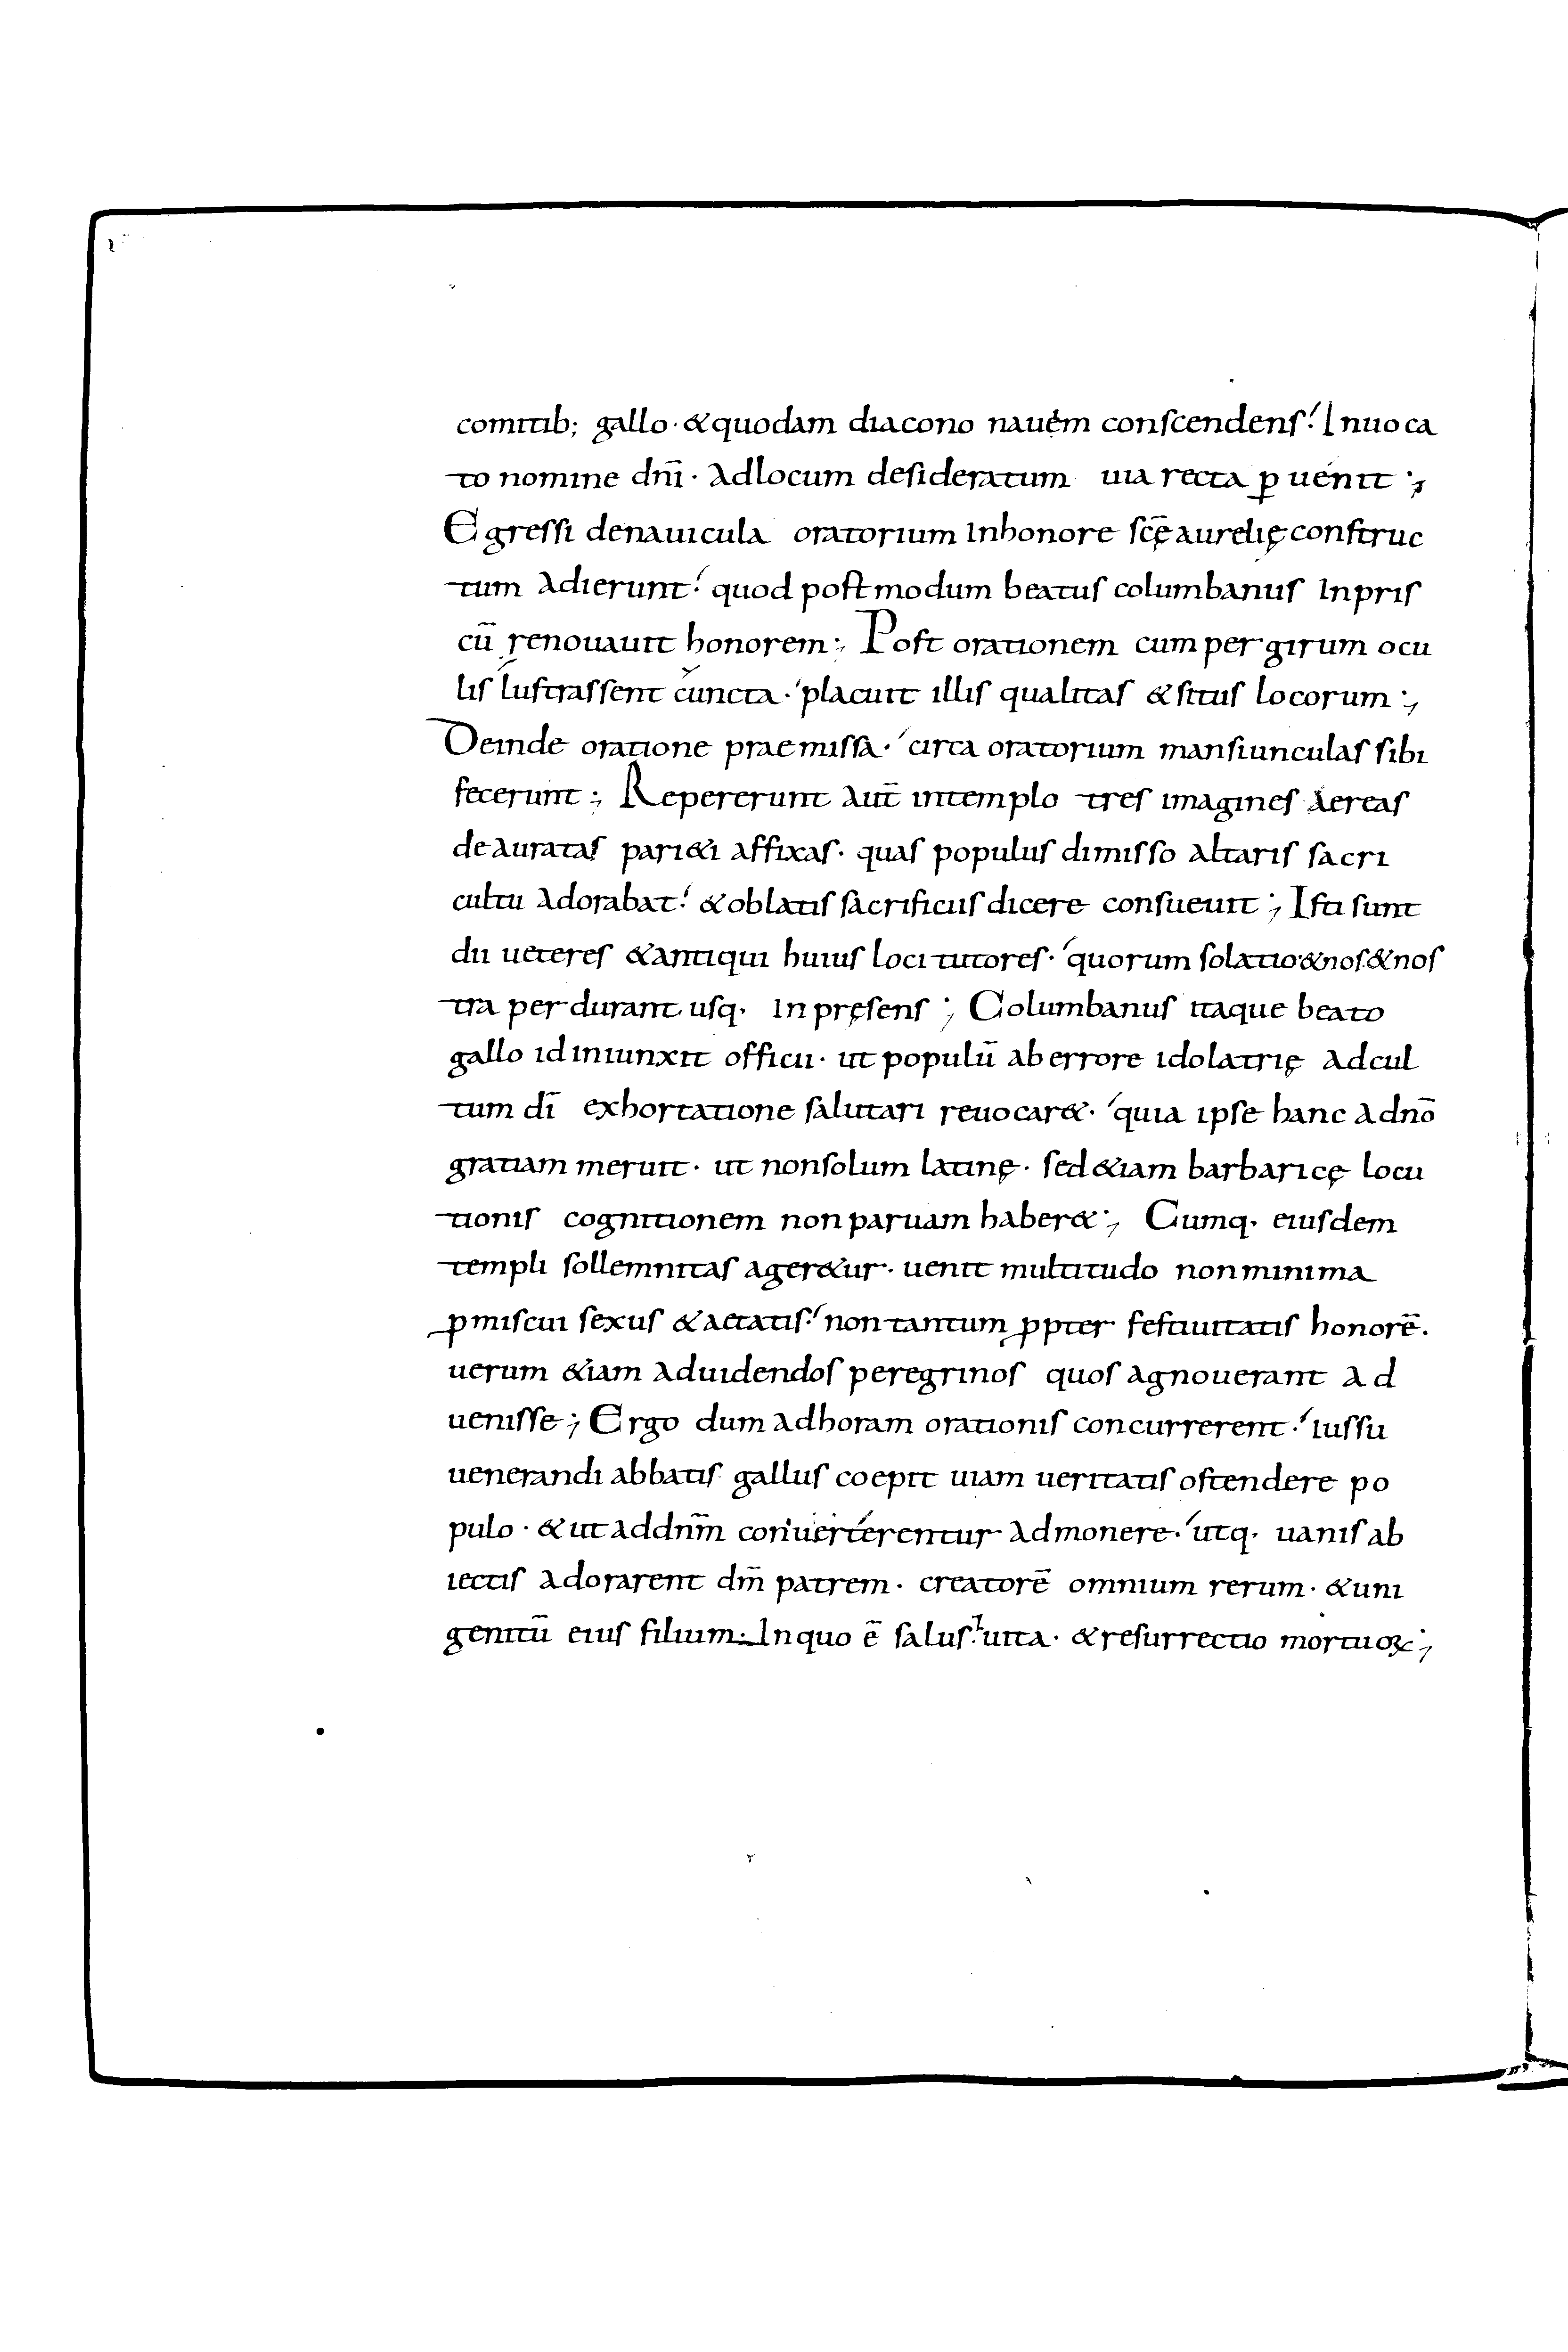 comitib; gallo· &quodam diacono nauem conscendens·' Inuoca
to nomine dnī· adlocum desideratum uia recta ꝑuenit·;
Egressi denauicula oratorium inhonore scę̄ aurelię construc
tum adierunt·' quod postmodum beatus columbanus inpris
cū renouauit honorem·; Post orationem cum per girum ocu
lis lustrassent cuncta·' placuit illis qualitas &situs locorum·;
Deinde oratione praemissa·' circa oratorium mansiunculas sibi
fecerunt·; Repererunt aut̄ intemplo tres imagines aereas
deauratas pari&i affixas· quas populus dimisso altaris sacri
cultu adorabat·' &oblatis sacrificiis dicere consueuit·; Isti sunt
dii ueteres &antiqui huius loci tutores·' quorum solatio·&nos·&nos
tra perdurant usq· inpręsens·; Columbanus itaque beato
gallo id iniunxit officii· ut populū aberrore idolatrię adcul
tum dī exhortatione salutari reuocar&·' quia ipse hanc adnō
gratiam meruit· ut nonsolum latinę· sed &iam barbaricę locu
tionis cognitionem nonparuam haber&·; Cumq· eiusdem
templi sollemnitas ager&ur· uenit multitudo nonminima
ꝓmiscui sexus &aetatis·' nontantum ꝓpter festiuitatis honorē·
uerum &iam aduidendos peregrinos quos agnouerant ad
uenisse·; Ergo dum adhoram orationis concurrerent·' iussu
uenerandi abbatis gallus coepit uiam ueritatis ostendere po
pulo· &ut addnm̄ conuerterentur admonere·' utq· uanis ab
iectis adorarent dm̄ patrem· creatorē omnium rerum· &uni
genitū eius filium· Inquo ē salus·' uita· &resurrectio mortuoꝝ·;